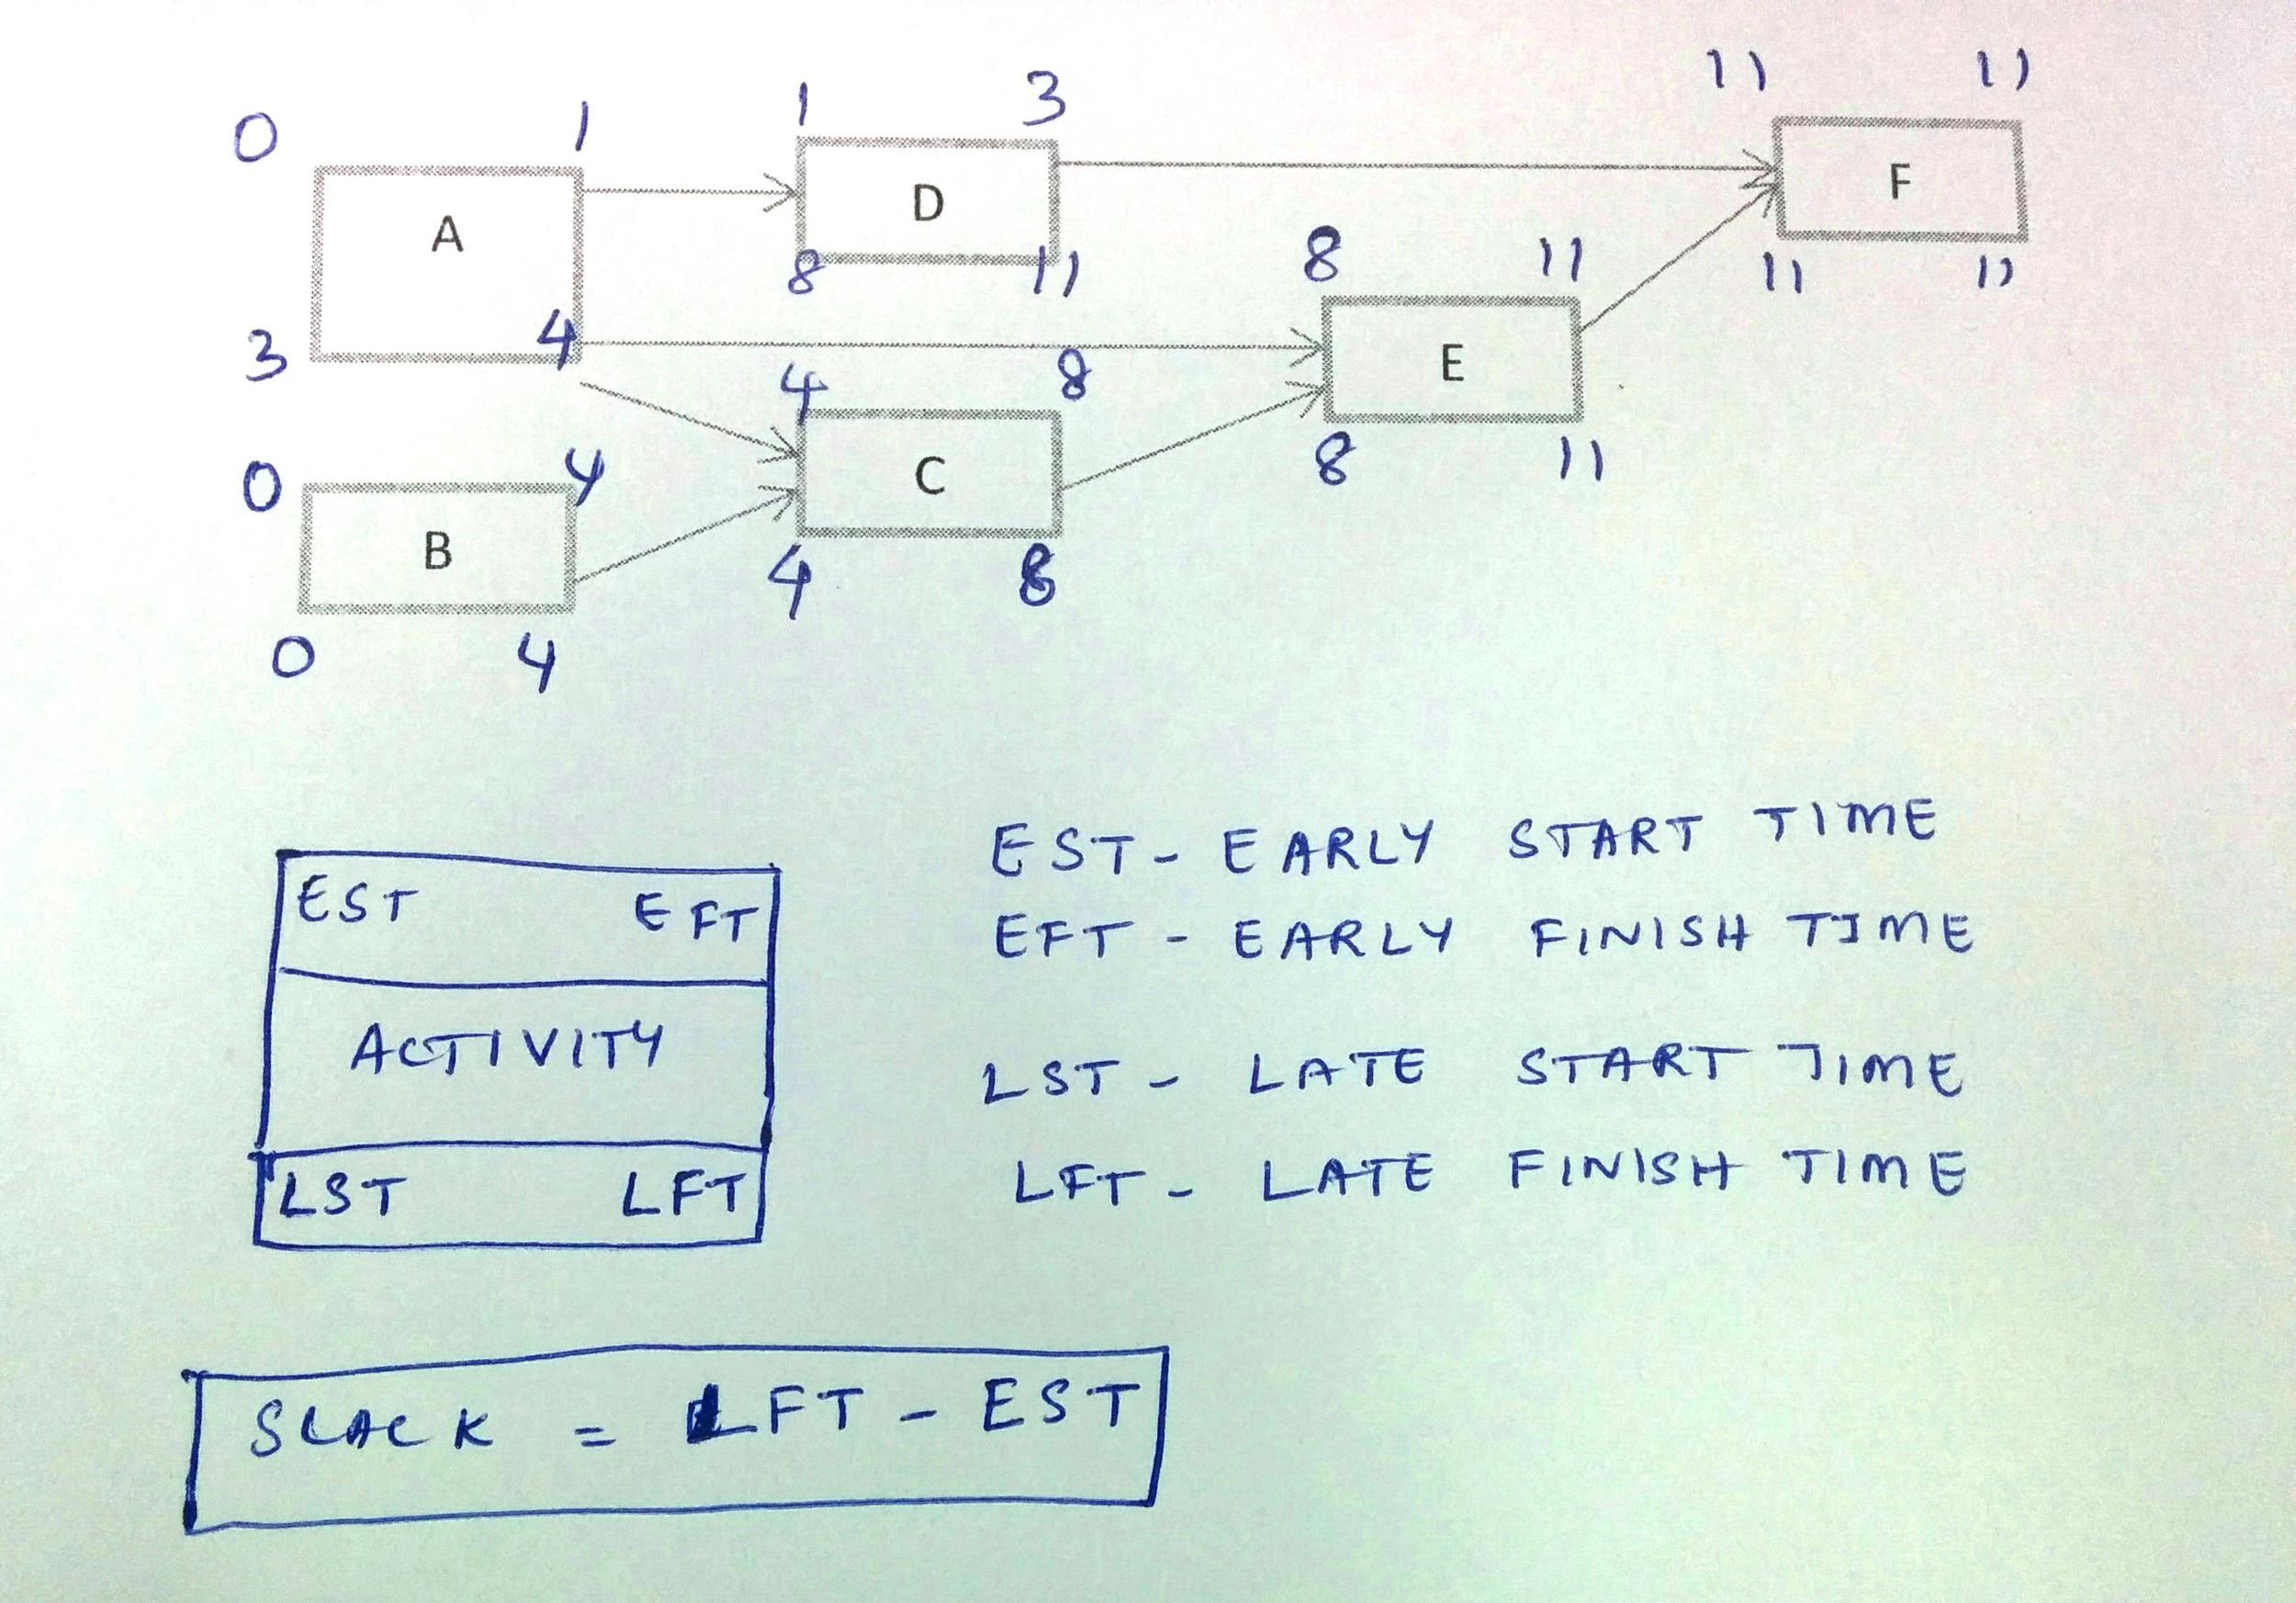 0 1 1 3 11 11
A D F
8 11 8 11 11 11
3 4 4 8 E
0 4 C 8 11
B 4 8
0 4
EST EFT
ACTIVITY
LST LFT
EST - EARLY START TIME
EFT - EARLY FINISH TIME
LST - LATE START TIME
LFT - LATE FINISH TIME
SLACK = LFT - EST